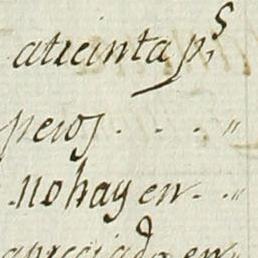 atreinta p.s
pesos . . . "
no hay en . . "
apreciado en